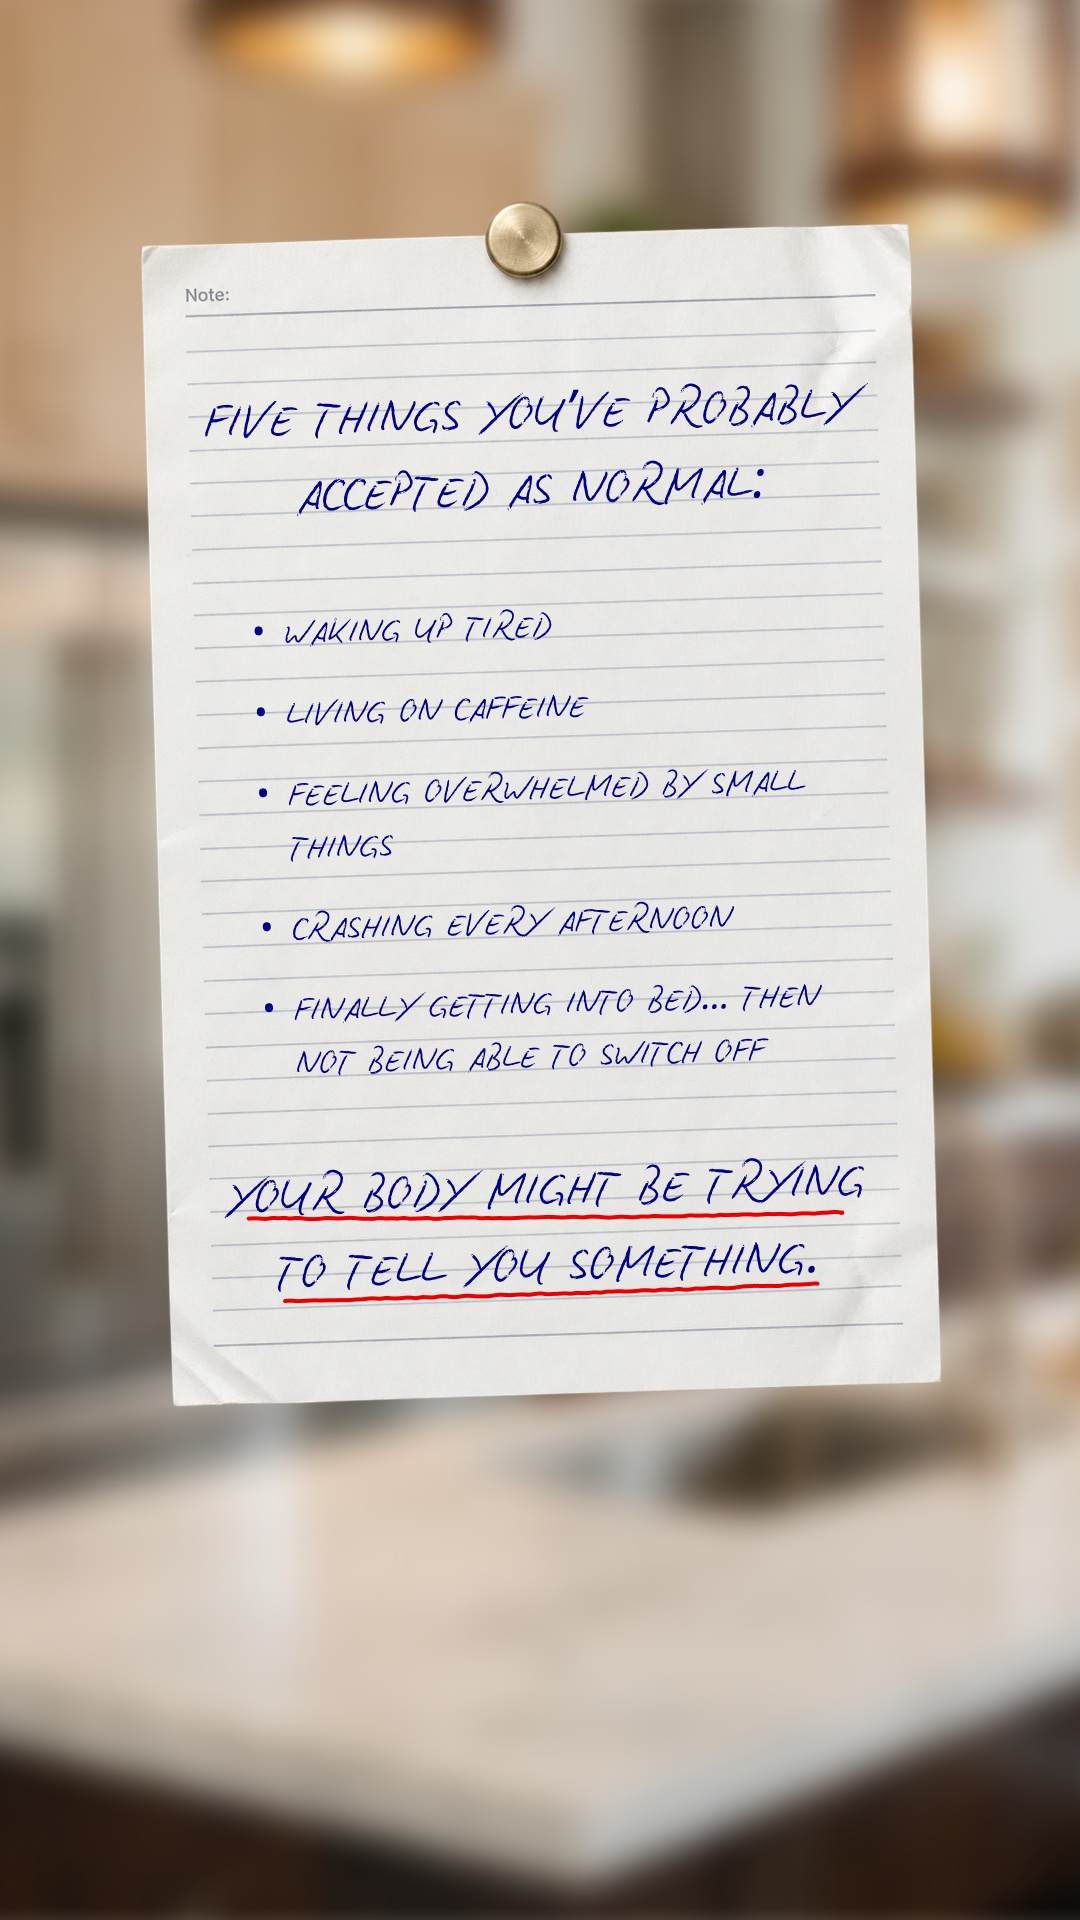 Note:
FIVE THINGS YOU'VE PROBABLY
ACCEPTED AS NORMAL:
• WAKING UP TIRED
• LIVING ON CAFFEINE
• FEELING OVERWHELMED BY SMALL
THINGS
• CRASHING EVERY AFTERNOON
• FINALLY GETTING INTO BED... THEN
NOT BEING ABLE TO SWITCH OFF
YOUR BODY MIGHT BE TRYING
TO TELL YOU SOMETHING.